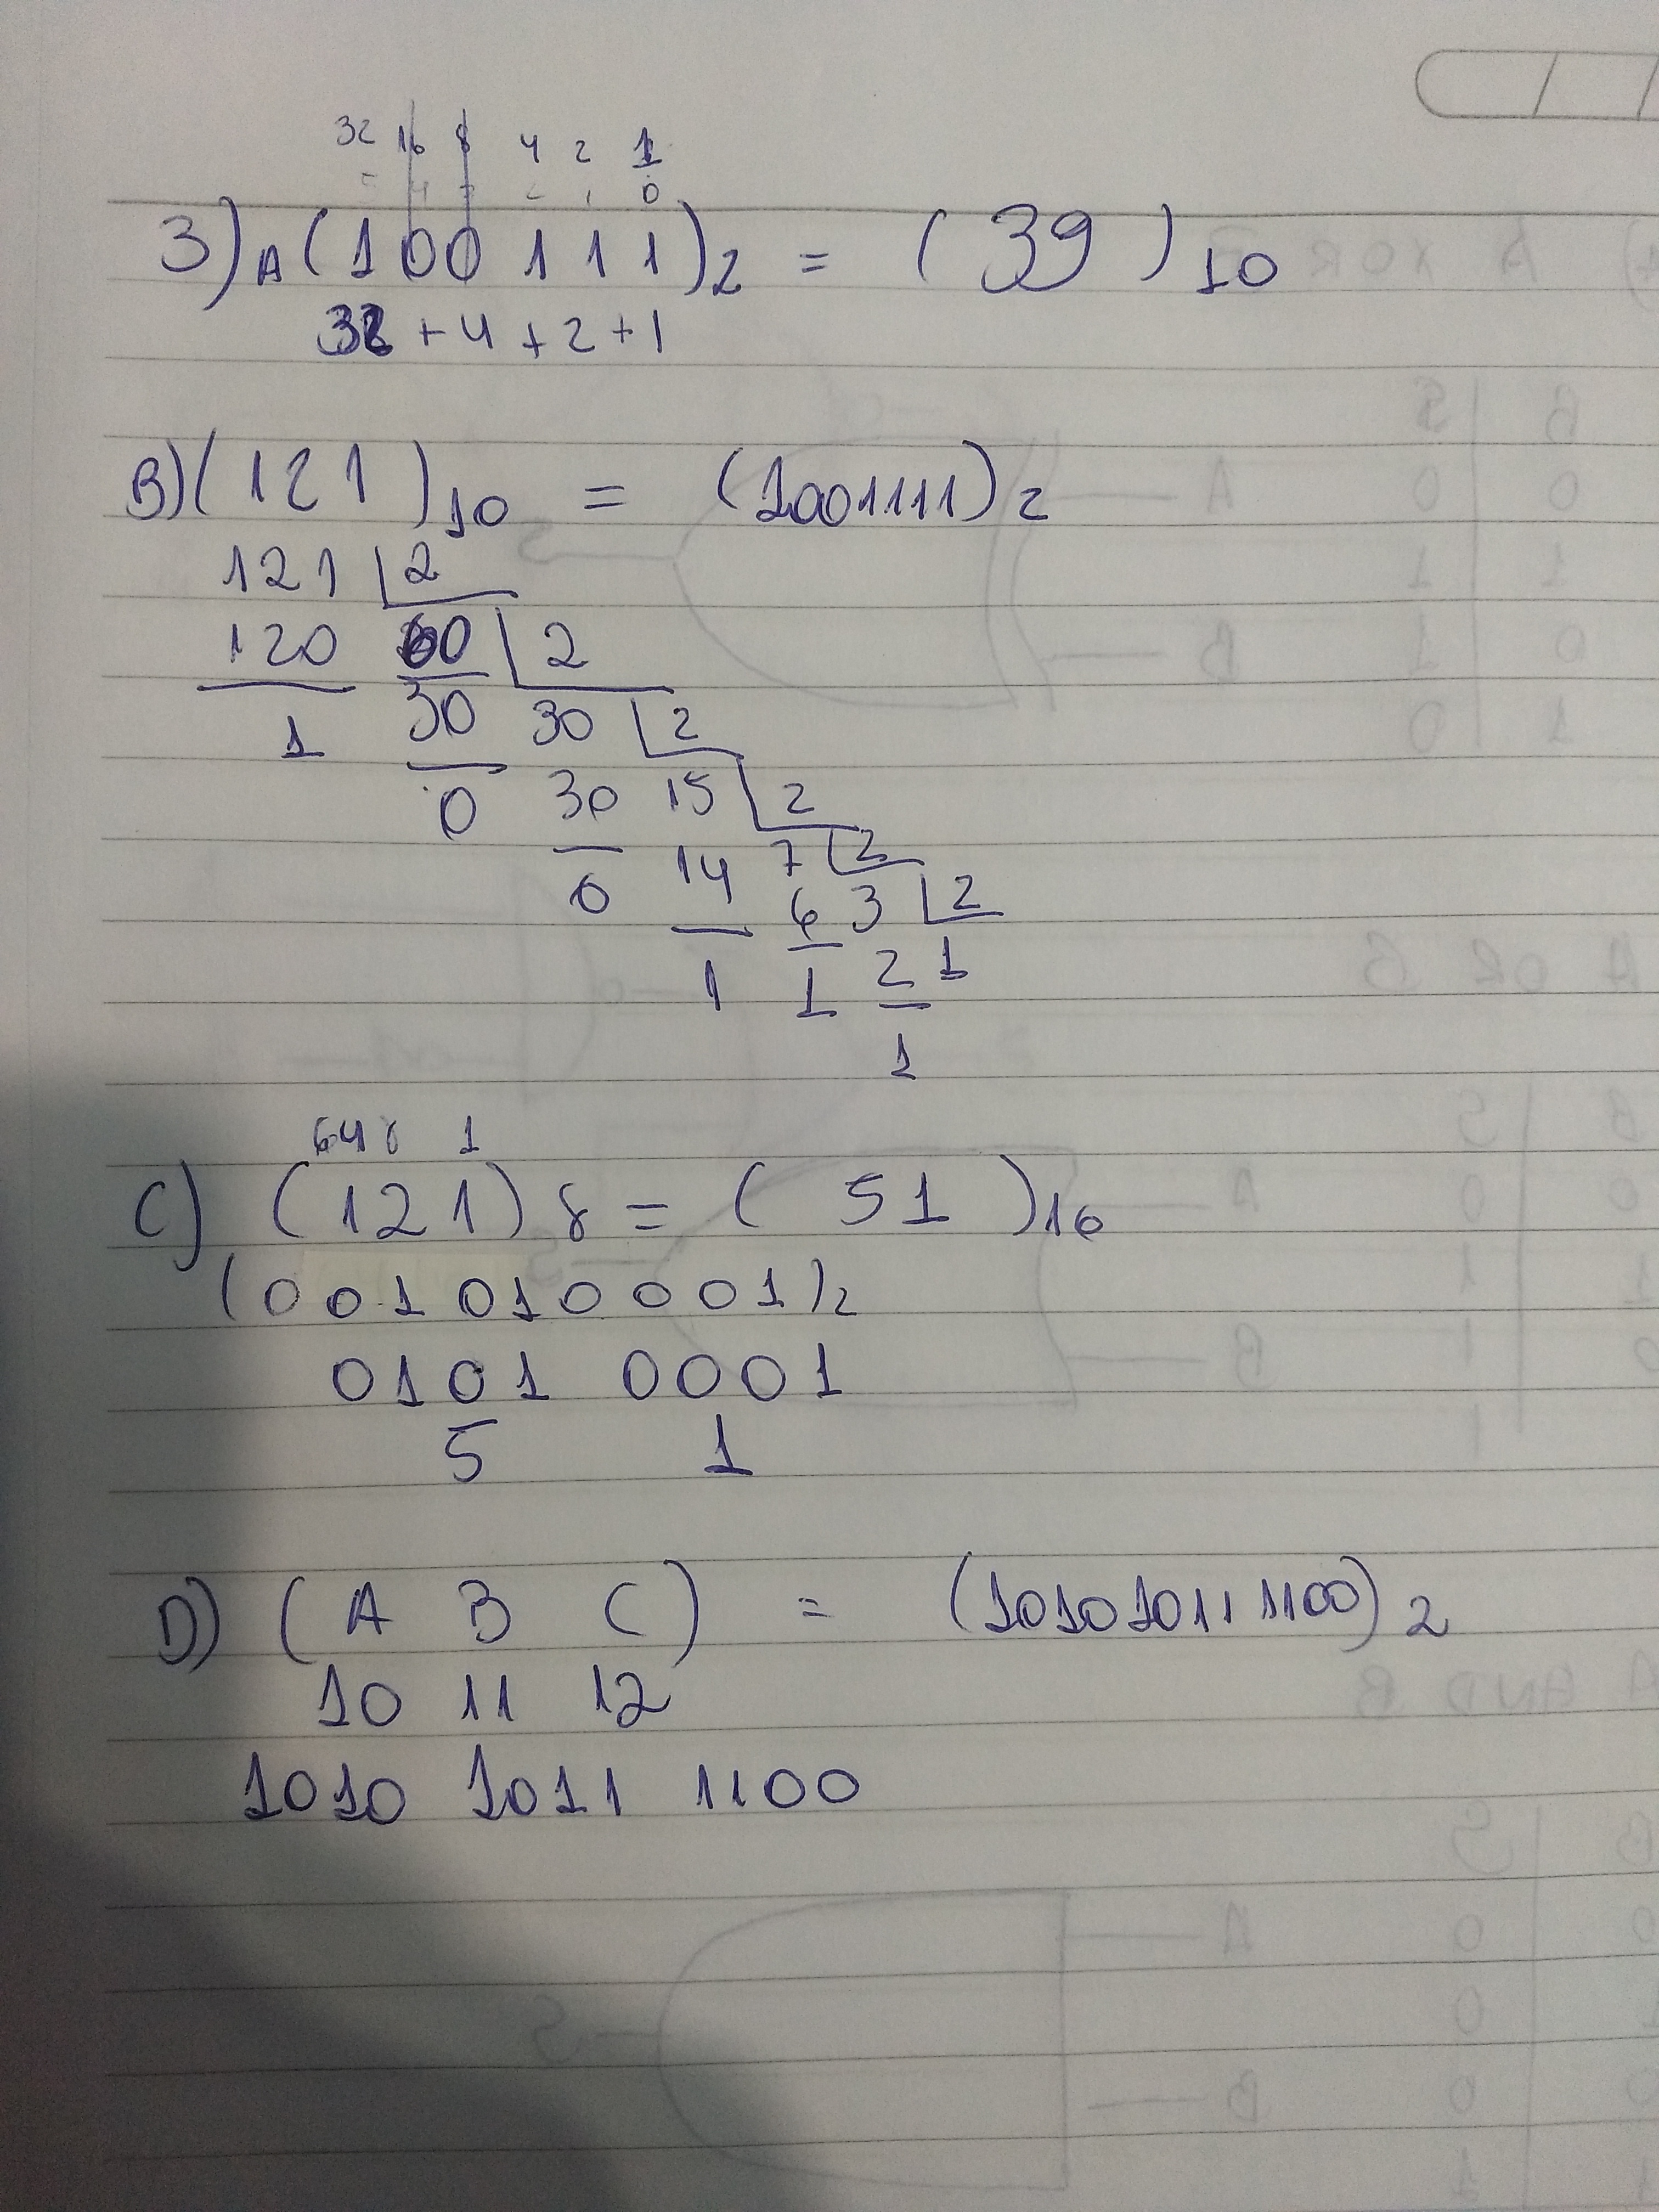 32 16 8 4 2 1
0
3) A (100111)2 = (39)10
32 + 4 + 2 + 1
B) (121)10 = (1001111)2
121 2
120 60 2
1 30 30 2
0 30 15 2
0 14 7 2
1 6 3 2
1 2 1
1
64 8 1
C) (121)8 = (51)16
(001010001)2
0101 0001
5 1
D) (A B C) = (101010111100)2
10 11 12
1010 1011 1100